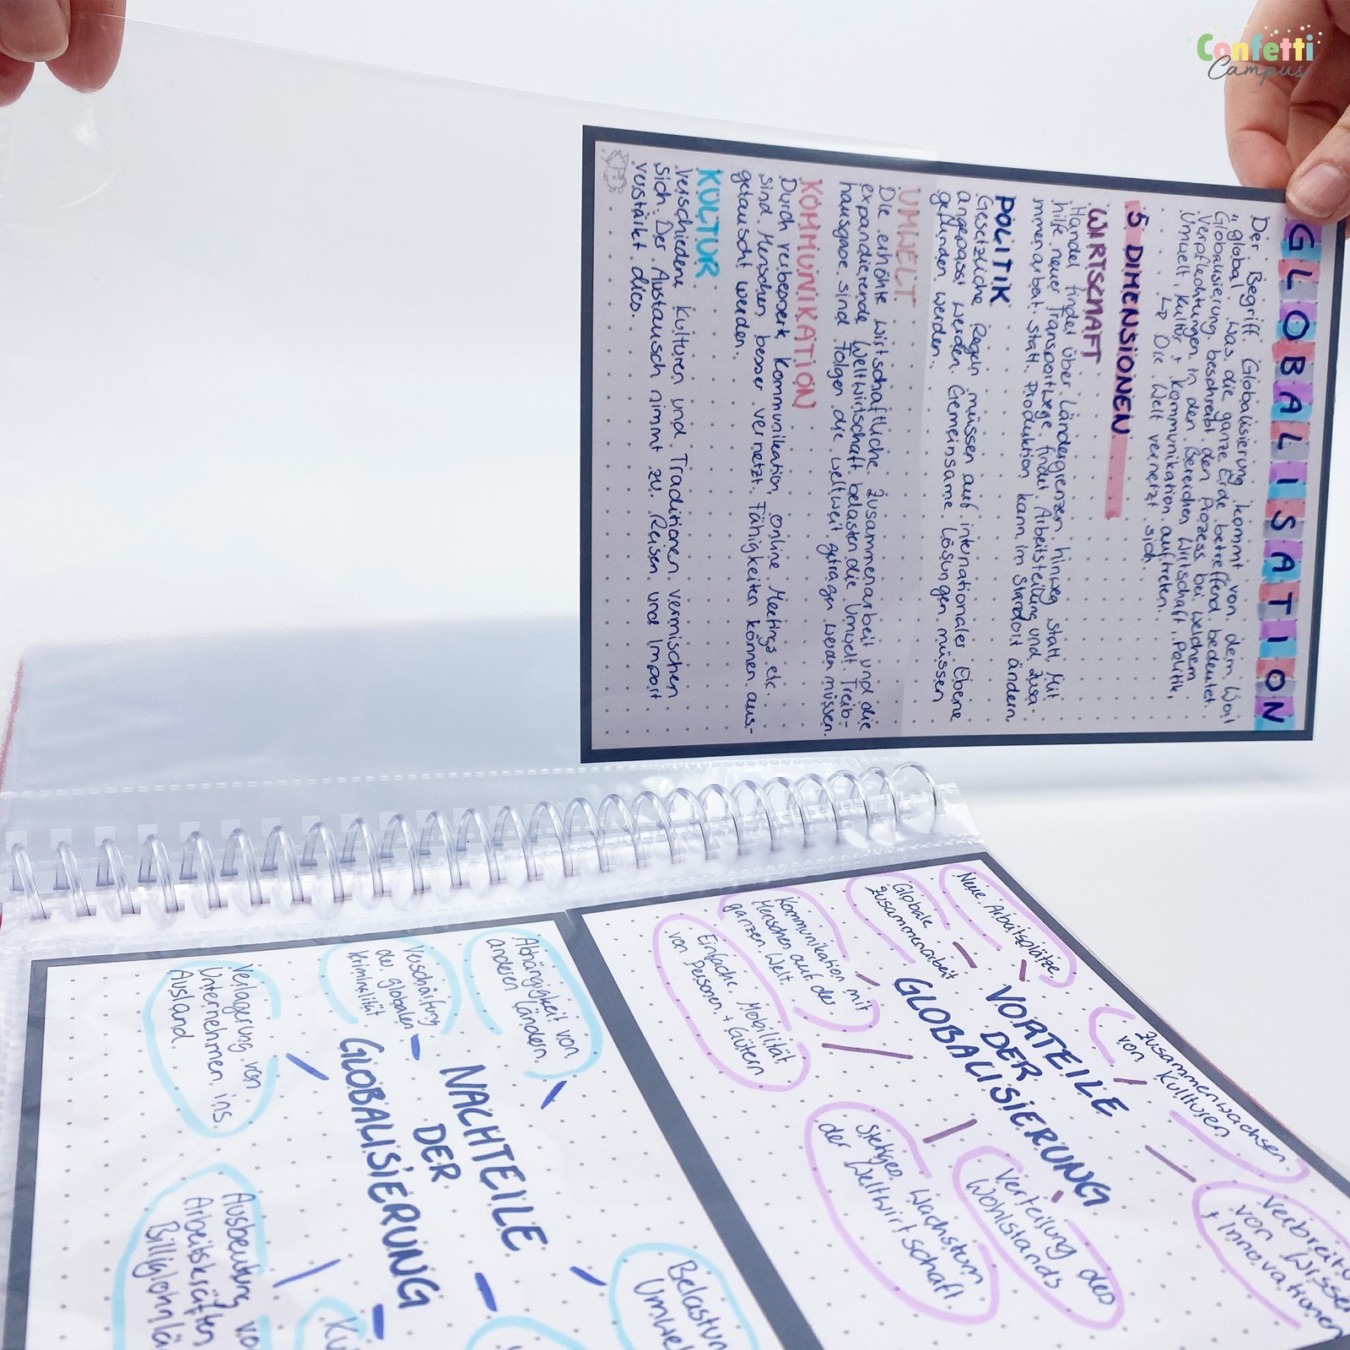 Confetti
Campus
GLOBALISATION
Der Begriff Globalisierung kommt von dem Wort
"global" was die ganze Erde betreffend bedeutet.
Globalisierung beschreibt den Prozess bei welchem
Verpflechtungen in den Bereichen Wirtschaft, Politik,
Umwelt, Kultur + Kommunikation auftreten.
↳ Die Welt vernetzt sich.
5 DIMENSIONEN
WIRTSCHAFT
Handel findet über Ländergrenzen hinweg statt. Mit
hilfe neuer Transportwege findet Arbeitsteilung und Zusa-
mmenarbeit statt. Produktion kann im Standort ändern.
POLITIK
Gesetzliche Regeln müssen auf internationaler Ebene
angepasst werden. Gemeinsame Lösungen müssen
gefunden werden.
UMWELT
Die erhöhte wirtschaftliche Zusammenarbeit und die
expandierende Weltwirtschaft belasten die Umwelt. Treib-
hausgase sind Folgen die weltweit getragen werden müssen.
KOMMUNIKATION
Durch verbesserte Kommunikation, online Meetings etc.
sind Menschen besser vernetzt. Fähigkeiten können aus-
getauscht werden.
KULTUR
Verschiedene Kulturen und Traditionen vermischen
sich. Der Austausch nimmt zu. Reisen und Import
verstärkt dies.
VORTEILE
DER
GLOBALISIERUNG
Neue Arbeitsplätze
Globale
Zusammenarbeit
Kommunikation mit
Menschen auf der
ganzen Welt.
Einfache Mobilität
von Personen + Gütern
Zusammenwachsen
von Kulturen
Verbreitu
von Wisse
+ Innovationen
Verteilung des
Wohlstands
Stetiges Wachstum
der Weltwirtschaft
NACHTEILE
DER
GLOBALISIERUNG
Abhängigkeit von
anderen Ländern.
Verschärfung
der globalen
Kriminalität
Verlagerung von
Unternehmen ins
Ausland.
Ausbeutung vo
Arbeitskräften
Billiglohnlä
Belastun
Umwel
Ku